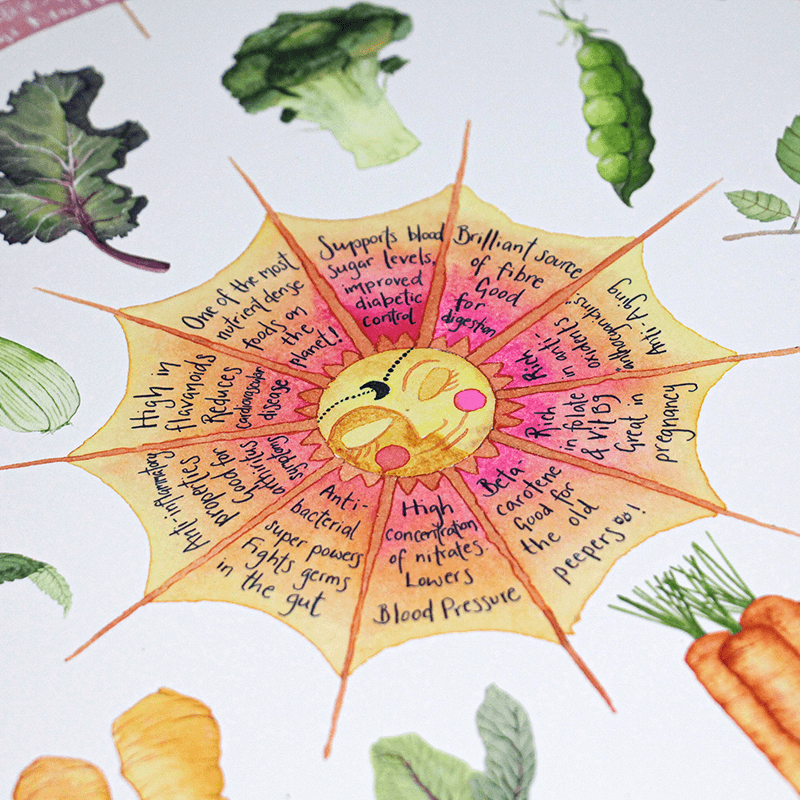 Supports blood
sugar levels,
improved
diabetic
control
Brilliant source
of fibre
Good
for
digestion
Rich
in anti-
oxidents
Anti-Aging
Rich
in folate
& Vit B9
Great in
pregnancy
Beta-
carotene
Good for
the old
peepers!
High
concentration
of nitrates.
Lowers
Blood Pressure
Anti-
bacterial
super powers
Fights germs
in the gut
Anti-inflammatory
properties
Good for
arthiritus
symptoms
High in
flavanoids
Reduces
cardiovascular
disease
One of the most
nutrient dense
foods on
the
planet!